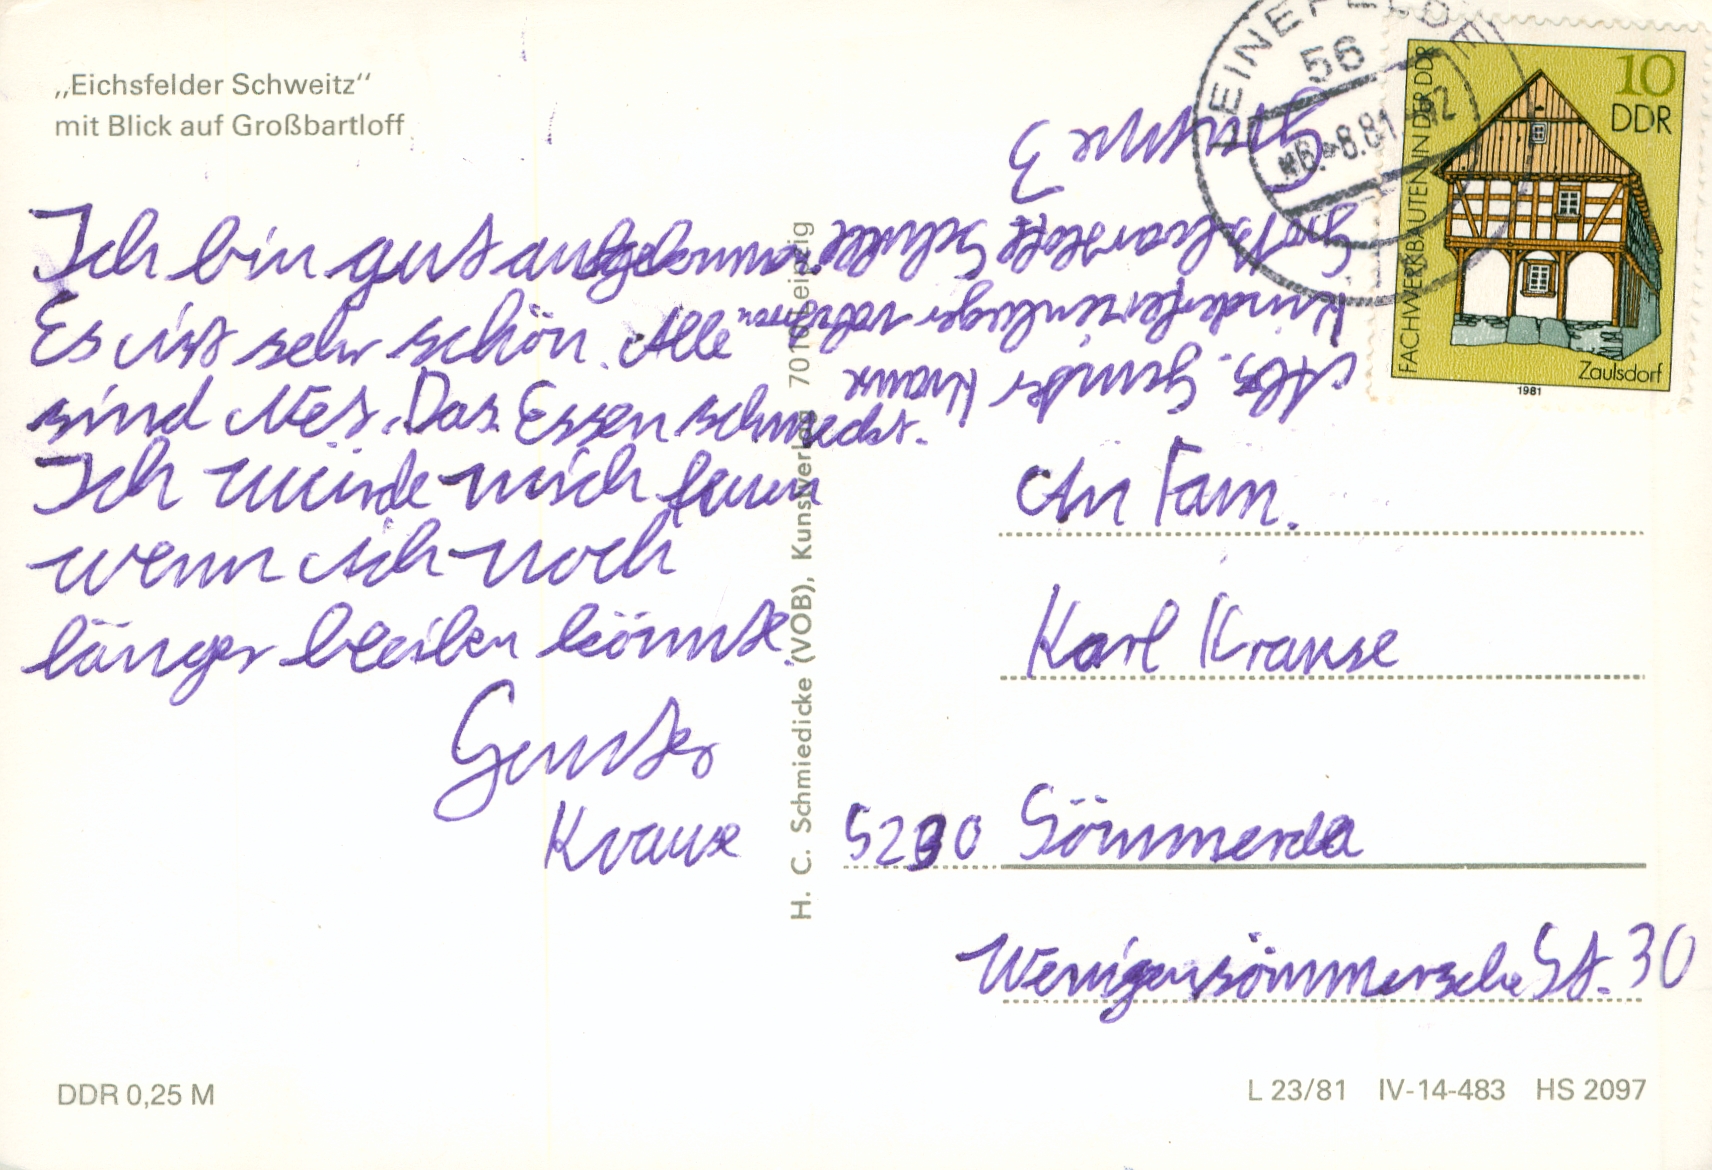 „Eichsfelder Schweitz“
mit Blick auf Großbartloff
Ich bin gut angekommen
Es ist sehr schön. Alle
sind Net. Das Essen schmeckt.
Ich würde mich freuen
wenn ich noch
länger bleiben könnte.
Gunter
Krause
DDR 0,25 M
H. C. Schmiedicke (VOB), Kunstverlag 7010 Leipzig
Abs. Gunter Krause
Kinderferienlager
Großbartloff Schule
Gruppe 3
LEINEFELDE
56
-6.-8.81-12
FACHWERKBAUTEN IN DER DDR
10
DDR
Zaulsdorf
1981
An Fam.
Karl Krause
5230 Sömmerda
Wenigensömmersche St. 30
L 23/81 IV-14-483 HS 2097